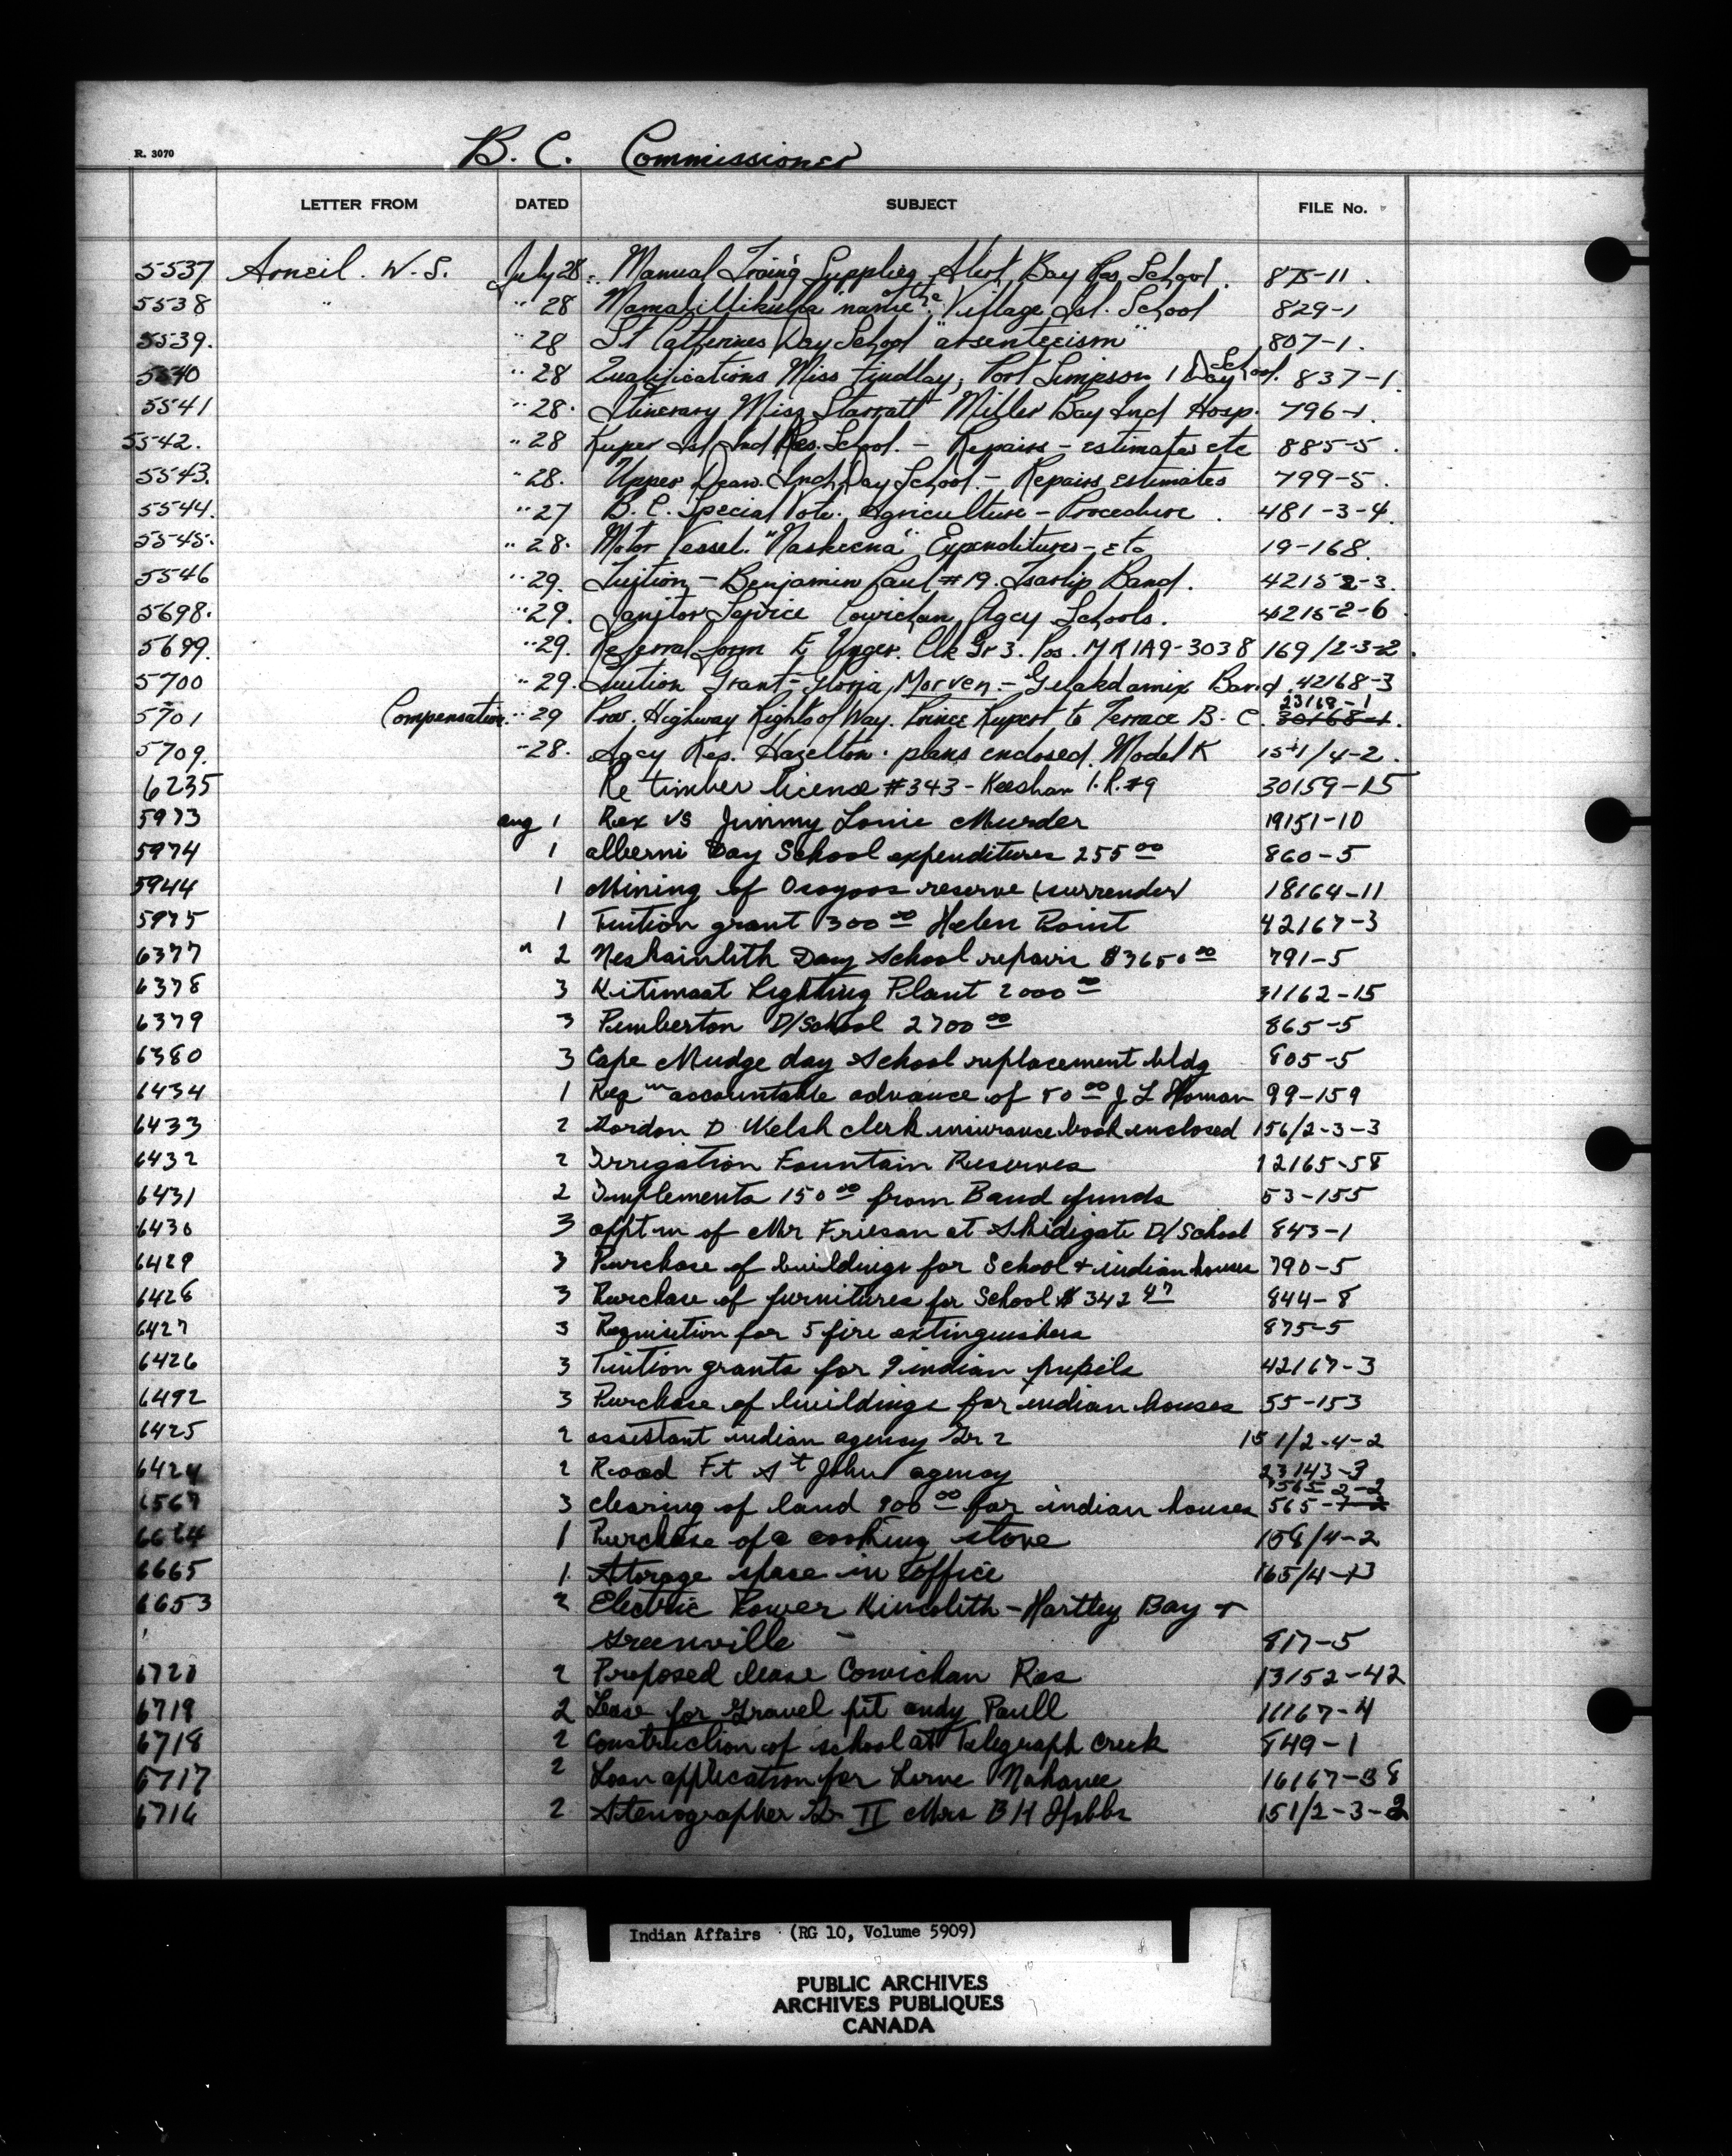 R. 3070
B. C. Commissioner
LETTER FROM DATED SUBJECT FILE No.
5537 Arneil. W. S. July 28. Manual Traing Supplies Alert Bay Res School. 875-11.
5538 " " 28 Mamalillikulla "name" the Village Isl. School 829-1
5539. " 28 St Catherines Day School "absenteeism" 807-1.
5540 " 28 Qualifications Miss Findlay, Port Simpson I Day School. 837-1.
5541 " 28. Itinerary Miss Starratt Miller Bay Ind Hosp. 796-1.
5542. " 28 Kuper Isl Ind Res. School. - Repairs - estimates etc 885-5.
5543. " 28. Upper Dean. Ind Day School. - Repairs estimates 799-5.
5544. " 27 B. C. Special Vote. Agriculture - Procedure. 481-3-4.
5545. " 28. Motor Vessel. "Naskeena" Expenditures - etc 19-168.
5546 " 29. Tuition - Benjamin Paul #19. Tsartlip Band. 42152-3.
5698. " 29. Janitor Service Cowichan Agcy Schools. 42152-6.
5699. " 29. Referral form E Unger. Clk Gr 3. Pos. MR1A9-3038 169/2-3-2.
5700 " 29. Tuition Grant - Gloria Morven. - Gitlakdamix Band. 42168-3
5701 Compensation. " 29 Prov. Highway Rights of Way. Prince Rupert to Terrace B. C. 23168-1 30168-1.
5709. " 28. Agcy Res. Hazelton. plans enclosed. Model K 151/4-2.
6235 Re timber license #343 - Keeshan I.R. #9 30159-15
5973 Aug 1 Rex vs Jimmy Louie Murder 19151-10
5974 1 Alberni Day School expenditures 255 00 860-5
5944 1 Mining of Osoyoos reserve (surrender) 18164-11
5975 1 Tuition grant 300 00 Helen Point 42167-3
6377 " 2 Neskainlith Day School repairs $3650 00 791-5
6378 3 Kitimaat Lighting Plant 2000 00 31162-15
6379 3 Pemberton D/School 2700 00 865-5
6380 3 Cape Mudge day School replacement bldg 805-5
6434 1 Req m accountable advance of 50 00 J L Homan 99-159
6433 2 Gordon D Welsh clerk insurance book enclosed 156/2-3-3
6432 2 Irrigation Fountain Reserves 12165-58
6431 2 Implements 150 00 from Band funds 53-155
6430 3 apptm of Mr Friesan at Skidigate D/School 843-1
6429 3 Purchase of buildings for School + indian houses 790-5
6428 3 Purchase of furnitures for School $342 47 844-8
6427 3 Requisition for 5 fire extinguishers 875-5
6426 3 Tuition grants for 9 indian pupils 42167-3
6492 3 Purchase of buildings for indian houses 55-153
6425 2 assistant indian agency Gr 2 151/2-4-2
6424 2 Road Ft St John agency 23143-3
6567 3 clearing of land 900 00 for indian houses 565-2-2 565-7-2
6664 1 Purchase of a cooking stove 158/4-2
6665 1 Storage space in office 165/4-13
6653 2 Electric Power Kincolith - Hartley Bay +
Greenville - 817-5
6720 2 Proposed lease Cowichan Res 13152-42
6719 2 Lease for Gravel pit Andy Paull 11167-4
6718 2 Construction of school at Telegraph Creek 849-1
6717 2 Loan application for Lorne Nahanee 16167-38
6716 2 Stenographer Gr II Mrs B H Hobbs 151/2-3-2
Indian Affairs (RG 10, Volume 5909)
PUBLIC ARCHIVES
ARCHIVES PUBLIQUES
CANADA